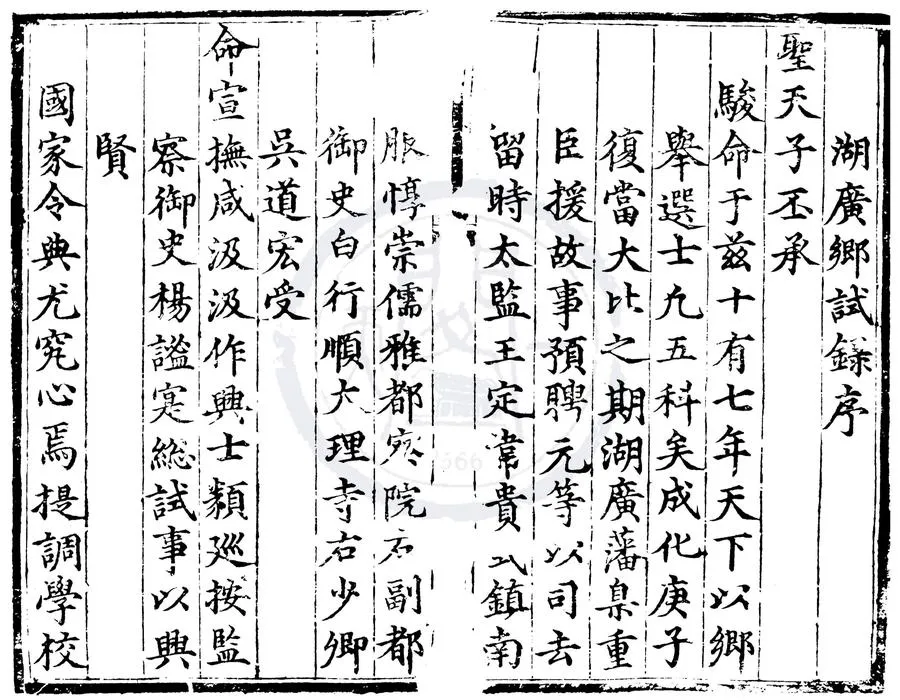 湖廣鄉試錄序
聖天子丕承
駿命于兹十有七年天下以鄉
舉選士凡五科矣成化庚子
復當大比之期湖廣藩臬重
臣援故事預聘元等以司去
留時太監王定韋貴以鎮南
服惇崇儒雅都察院右副都
御史白行順大理寺右少卿
吳道宏受
命宣撫咸汲汲作興士類廵按監
察御史楊謐寔総試事以興
賢
國家令典尤究心焉提調學校